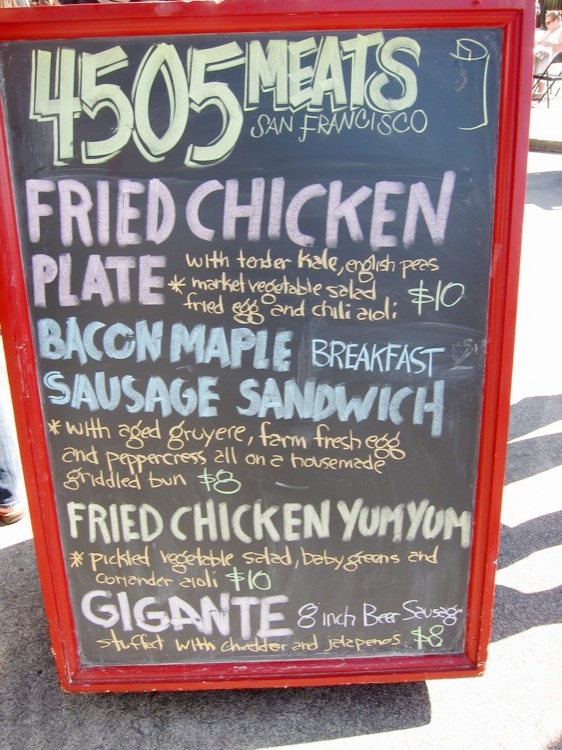 4505 MEATS
SAN FRANCISCO
FRIED CHICKEN
PLATE with tender kale, english peas
* market vegetable salad
fried egg and chili aioli $10
BACON MAPLE BREAKFAST
SAUSAGE SANDWICH
* with aged gruyere, farm fresh egg
and peppercress all on a housemade
griddled bun $8
FRIED CHICKEN YUM YUM
* pickled vegetable salad, baby greens and
coriander aioli $10
GIGANTE 8 inch Beer Sausage
stuffed with cheddar and jalapenos $8